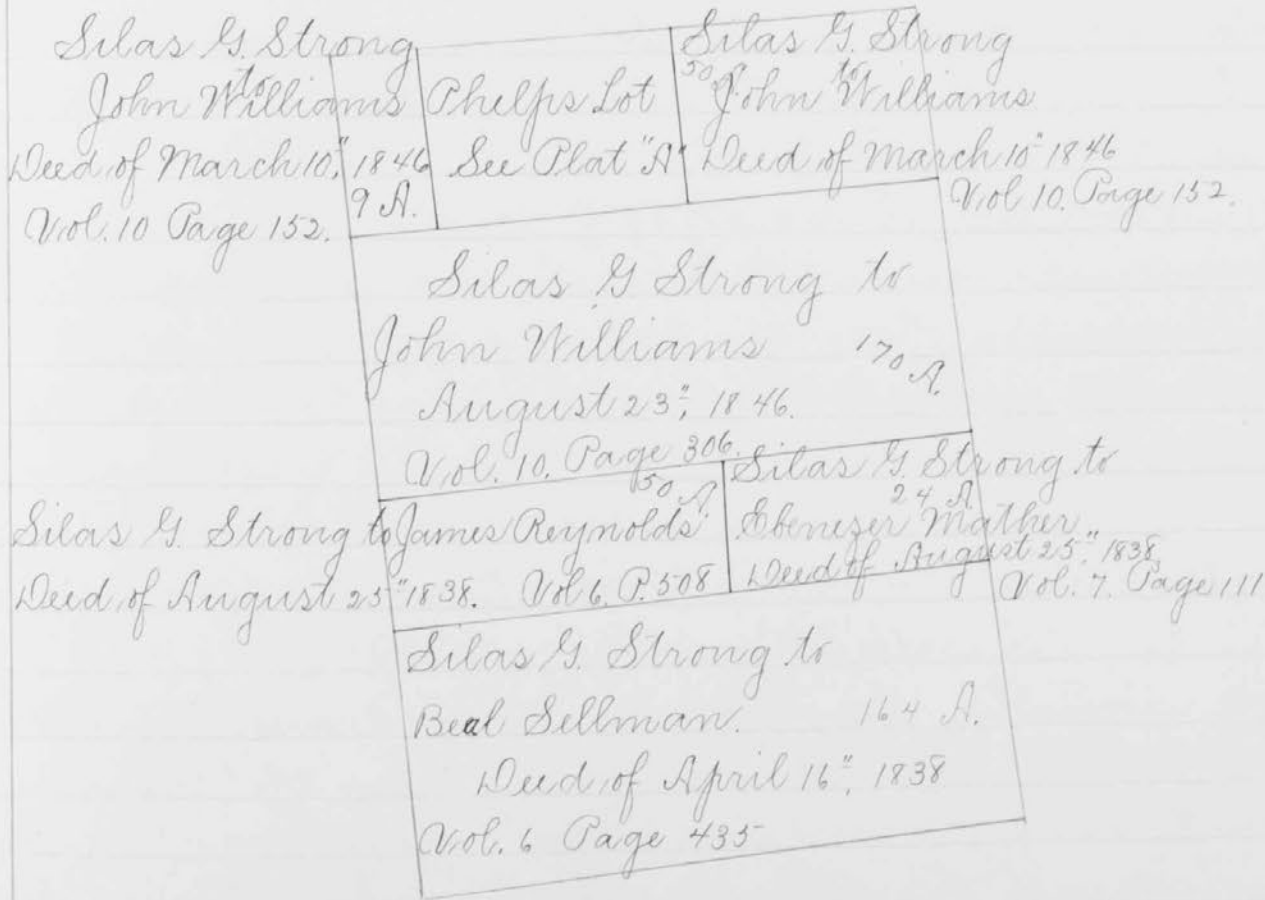 Silas G. Strong
to
John Williams
Deed of March 10", 1846
9 A.
Vol. 10 Page 152.
Phelps Lot
See Plat "A"
Silas G. Strong
50 A. to
John Williams
Deed of March 10" 1846
Vol 10. Page 152.
Silas G Strong to
John Williams
170 A.
August 23", 1846.
Vol. 10. Page 306.
50 A.
Silas G. Strong to James Reynolds
Deed of August 25" 1838. Vol 6. P. 508
Silas G. Strong to
24 A
Ebenezer Mather
Deed of August 25" 1838,
Vol. 7. Page 111
Silas G. Strong to
Beal Sellman. 164 A.
Deed of April 16", 1838
Vol. 6 Page 435